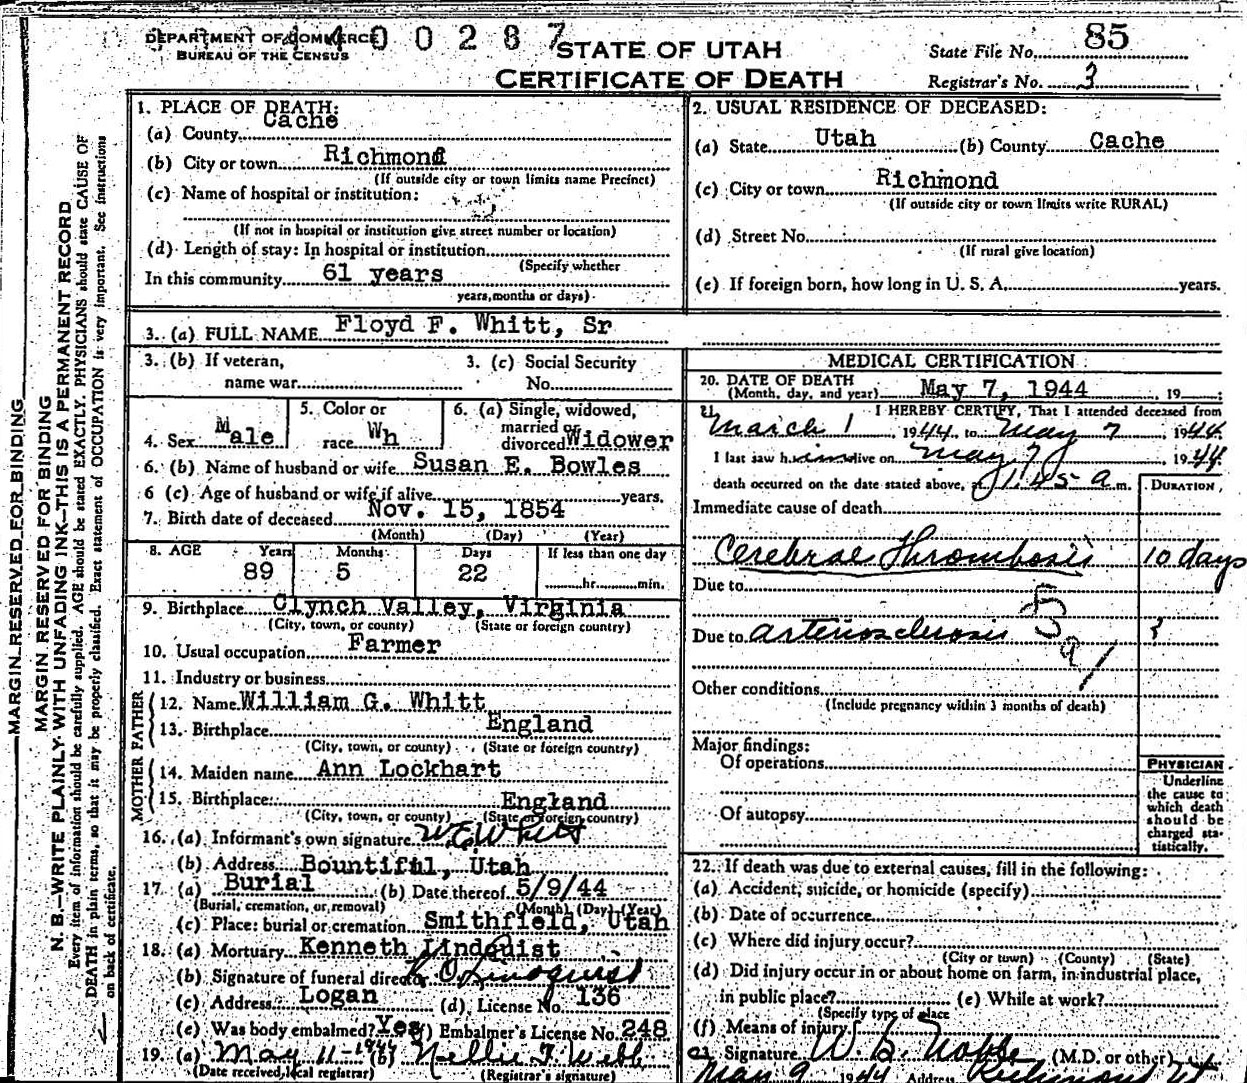 DEPARTMENT OF COMMERCE
BUREAU OF THE CENSUS
4400287
STATE OF UTAH
CERTIFICATE OF DEATH
State File No. 85
Registrar's No. 3
MARGIN RESERVED FOR BINDING
MARGIN RESERVED FOR BINDING
N. B.—WRITE PLAINLY WITH UNFADING INK—THIS IS A PERMANENT RECORD
Every item of information should be carefully supplied. AGE should be stated EXACTLY. PHYSICIANS should state CAUSE OF
DEATH in plain terms, so that it may be properly classified. Exact statement of OCCUPATION is very important. See instructions
on back of certificate.
1. PLACE OF DEATH:
(a) County Cache
(b) City or town Richmond
(If outside city or town limits name Precinct)
(c) Name of hospital or institution:
(If not in hospital or institution give street number or location)
(d) Length of stay: In hospital or institution
(Specify whether
In this community 61 years
years, months or days)
2. USUAL RESIDENCE OF DECEASED:
(a) State Utah (b) County Cache
(c) City or town Richmond
(If outside city or town limits write RURAL)
(d) Street No.
(If rural give location)
(e) If foreign born, how long in U. S. A. years.
3. (a) FULL NAME Floyd F. Whitt, Sr
3. (b) If veteran,
name war
3. (c) Social Security
No.
4. Sex Male
5. Color or
race Wh
6. (a) Single, widowed,
married or
divorced Widower
6. (b) Name of husband or wife Susan E. Bowles
6 (c) Age of husband or wife if alive years.
7. Birth date of deceased Nov. 15, 1854
(Month) (Day) (Year)
8. AGE Years Months Days If less than one day
89 5 22 hr. min.
9. Birthplace Clynch Valley, Virginia
(City, town, or county) (State or foreign country)
10. Usual occupation Farmer
11. Industry or business
FATHER
12. Name William G. Whitt
13. Birthplace England
(City, town, or county) (State or foreign country)
MOTHER
14. Maiden name Ann Lockhart
15. Birthplace: England
(City, town, or county) (State or foreign country)
16. (a) Informant's own signature W. E. Whitt
(b) Address Bountiful, Utah
17. (a) Burial (b) Date thereof 5/9/44
(Burial, cremation, or removal) (Month) (Day) (Year)
(c) Place: burial or cremation Smithfield, Utah
18. (a) Mortuary Kenneth Lindquist
(b) Signature of funeral director K O Lindquist
(c) Address Logan (d) License No. 136
(e) Was body embalmed? Yes (f) Embalmer's License No. 248
19. (a) May 11-1944 (b) Nellie T. Webb
(Date received, local registrar) (Registrar's signature)
MEDICAL CERTIFICATION
20. DATE OF DEATH
(Month, day, and year) May 7, 1944 19
21 I HEREBY CERTIFY, That I attended deceased from
March 1, 1944, to May 7, 1944.
I last saw him alive on May 7, 1944
death occurred on the date stated above, at 1:45 a.m.
DURATION
Immediate cause of death
Cerebral Thrombosis 10 days
Due to
Due to arteriosclerosis ?
Other conditions
(Include pregnancy within 3 months of death)
Major findings:
Of operations
Of autopsy
PHYSICIAN
Underline
the cause to
which death
should be
charged sta-
tistically.
22. If death was due to external causes, fill in the following:
(a) Accident, suicide, or homicide (specify)
(b) Date of occurrence
(c) Where did injury occur?
(City or town) (County) (State)
(d) Did injury occur in or about home on farm, in industrial place,
in public place? (e) While at work?
(Specify type of place
(f) Means of injury
23 Signature (M.D. or other)
May 9 1944 Address Richmond Ut